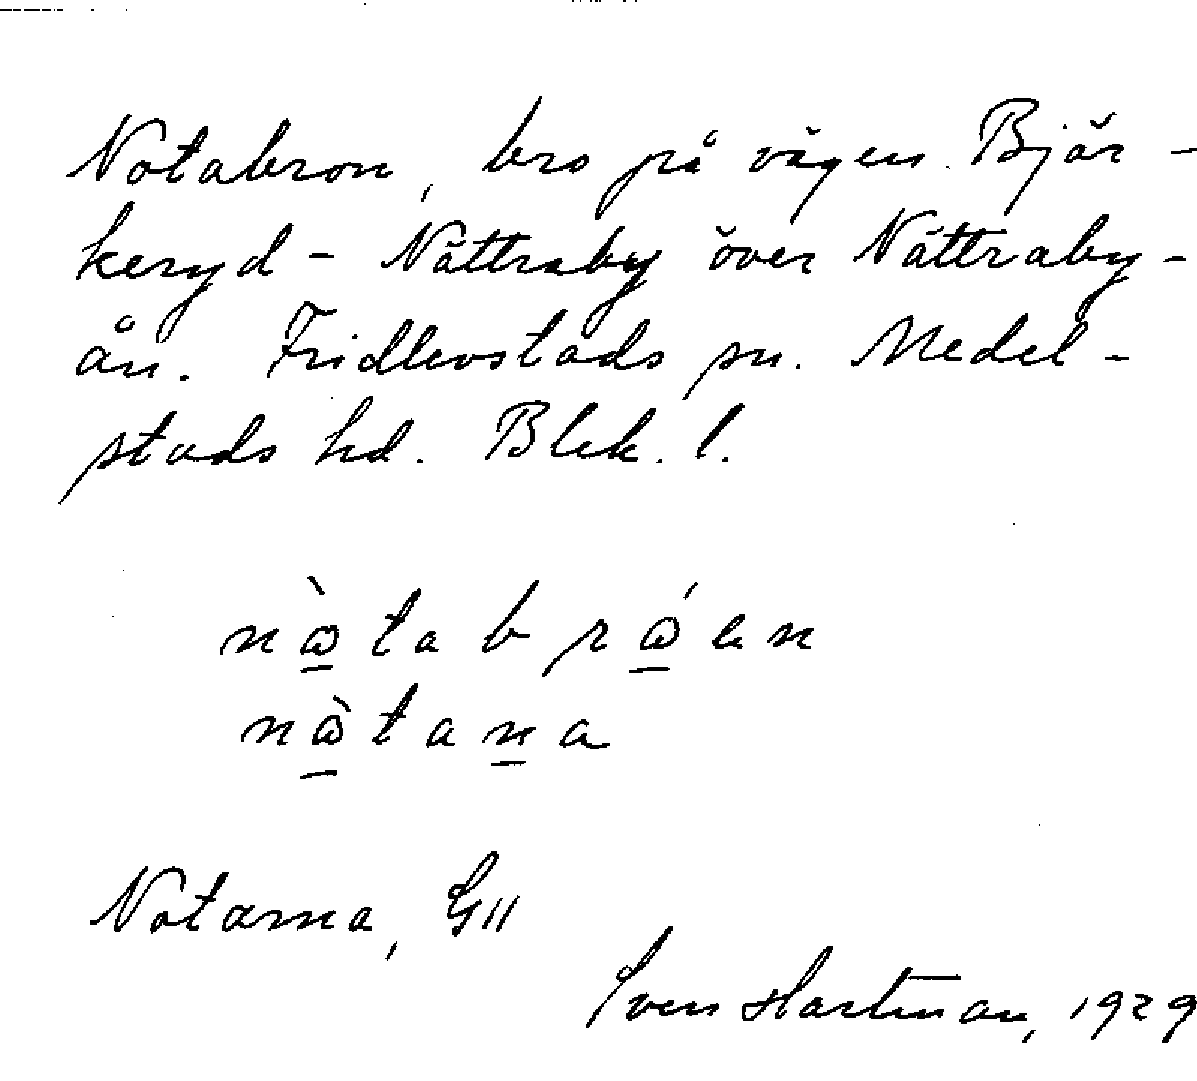 Notabron, bro på vägen Bjär-
keryd - Nättraby över Nättraby-
ån. Fridlevstads sn. Medel-
stads hd. Blek. l.
nὼ̱ta brώ̱en
nὼ̱tan̲a
Notarna, GII
Sven Hartman, 1929